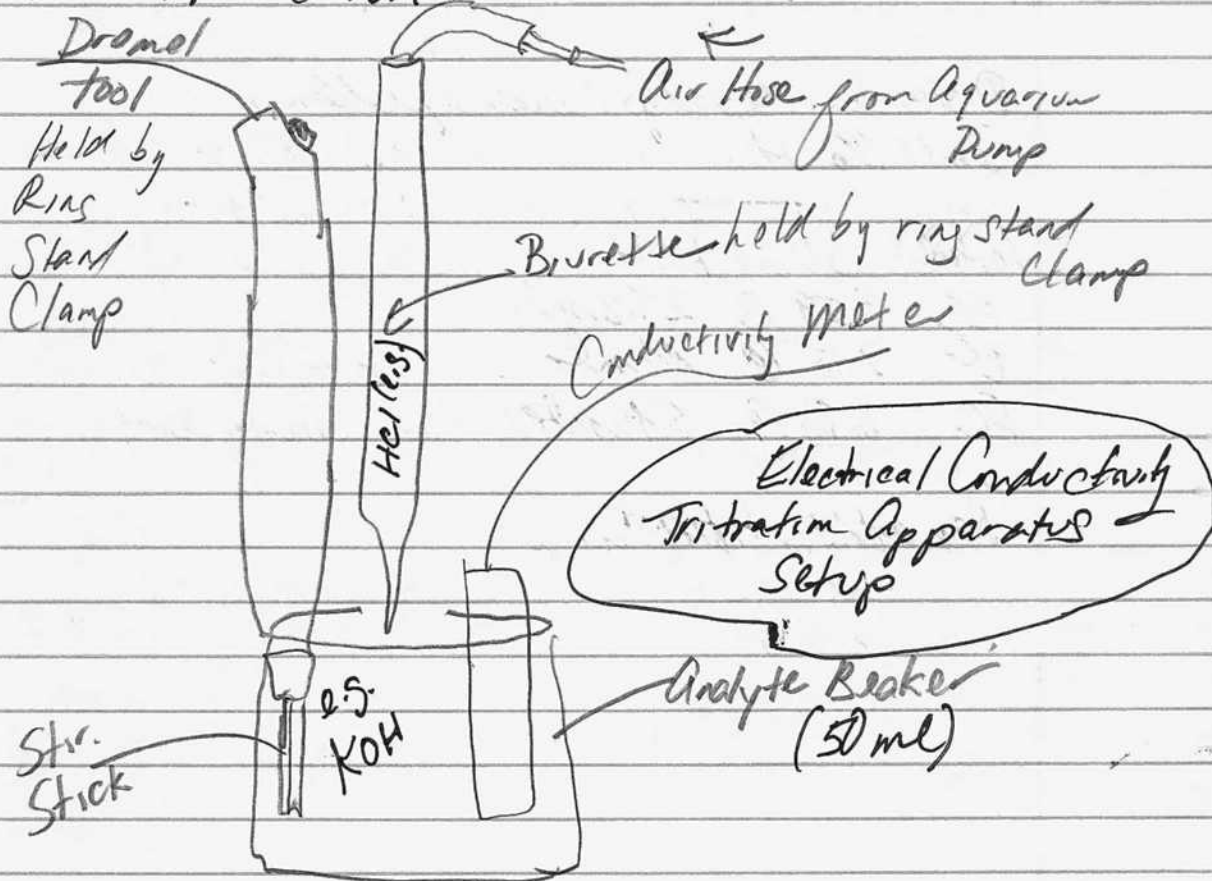 Dromel
tool
Held by
Ring
Stand
Clamp
Air Hose from Aquarium
Pump
Biurette held by ring stand
Clamp
Conductivity Meter
HCl (e.g)
Electrical Conductivity
Tritration Apparatus
Setup
Analyte Beaker
(50 ml)
e.g.
KOH
Stir.
Stick